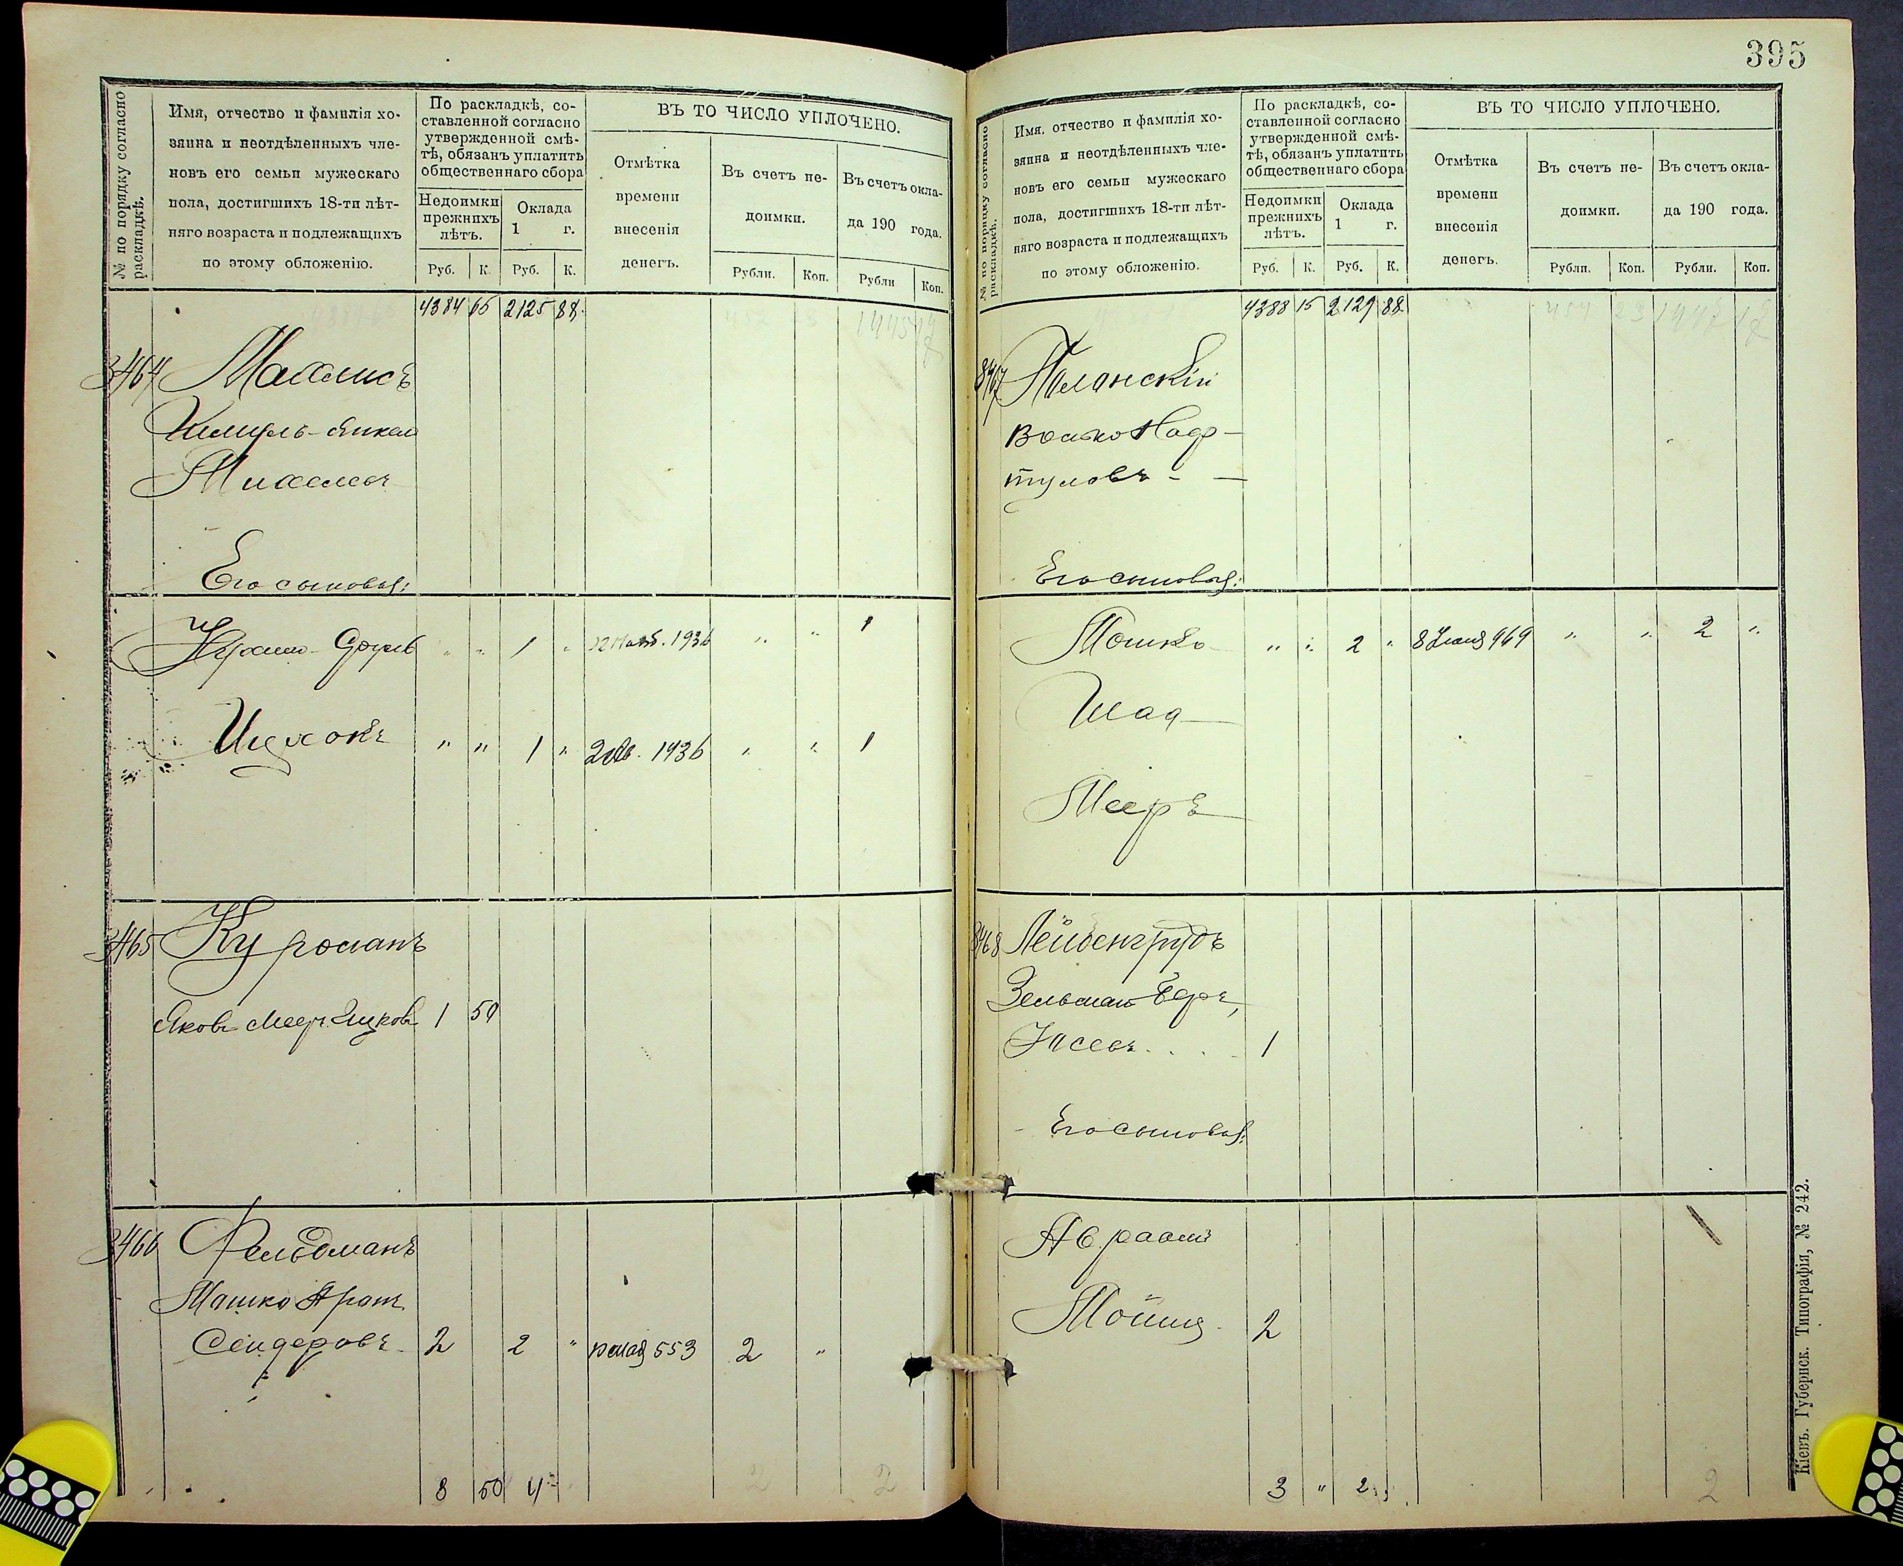 395
№ по порядку согласно раскладкѣ.
Имя, отчество и фамилія хо-
зяина и неотдѣленныхъ чле-
новъ его семьи мужескаго
пола, достигшихъ 18-ти лѣт-
няго возраста и подлежащихъ
по этому обложенію.
По раскладкѣ, со-
ставленной согласно
утвержденной смѣ-
тѣ, обязанъ уплатить
общественнаго сбора
Недоимки
прежнихъ
лѣтъ.
Оклада
1 г.
Руб. К. Руб. К.
ВЪ ТО ЧИСЛО УПЛОЧЕНО.
Отмѣтка
времени
внесенія
денегъ.
Въ счетъ не-
доимки.
Рубли. Коп.
Въ счетъ окла-
да 190 года.
Рубли Коп.
4384 65 2125 88
3464
Хаимъ-Янкель
Его сыновья:
1 " 1936 " " 1
Ицхокъ " " 1 " 1936 " " 1
3465
Яковъ Меер. Ицков. 1 50
3466 Фельдманъ
Мошко Аронъ
Сендеровъ 2 2 " 553 2 "
8 50 4
2 2
№ по порядку согласно раскладкѣ.
Имя, отчество и фамилія хо-
зяина и неотдѣленныхъ чле-
новъ его семьи мужескаго
пола, достигшихъ 18-ти лѣт-
няго возраста и подлежащихъ
по этому обложенію.
По раскладкѣ, со-
ставленной согласно
утвержденной смѣ-
тѣ, обязанъ уплатить
общественнаго сбора
Недоимки
прежнихъ
лѣтъ.
Оклада
1 г.
Руб. К. Руб. К.
ВЪ ТО ЧИСЛО УПЛОЧЕНО.
Отмѣтка
времени
внесенія
денегъ.
Въ счетъ не-
доимки.
Рубли. Коп.
Въ счетъ окла-
да 190 года.
Рубли. Коп.
4388 15 2129 88
3467 Полонскій
Волько Наф-
туловъ - -
Его сыновья:
Мошко " " 2 " 8 969 " " 2 "
Шая
Мееръ
3468 Лейбенгрубъ
Зельман Беръ,
Іосевъ 1
Его сыновья:
Авраамъ
Мойша 2
3 " 2
2
Кіевъ. Губернск. Типографія, № 242.